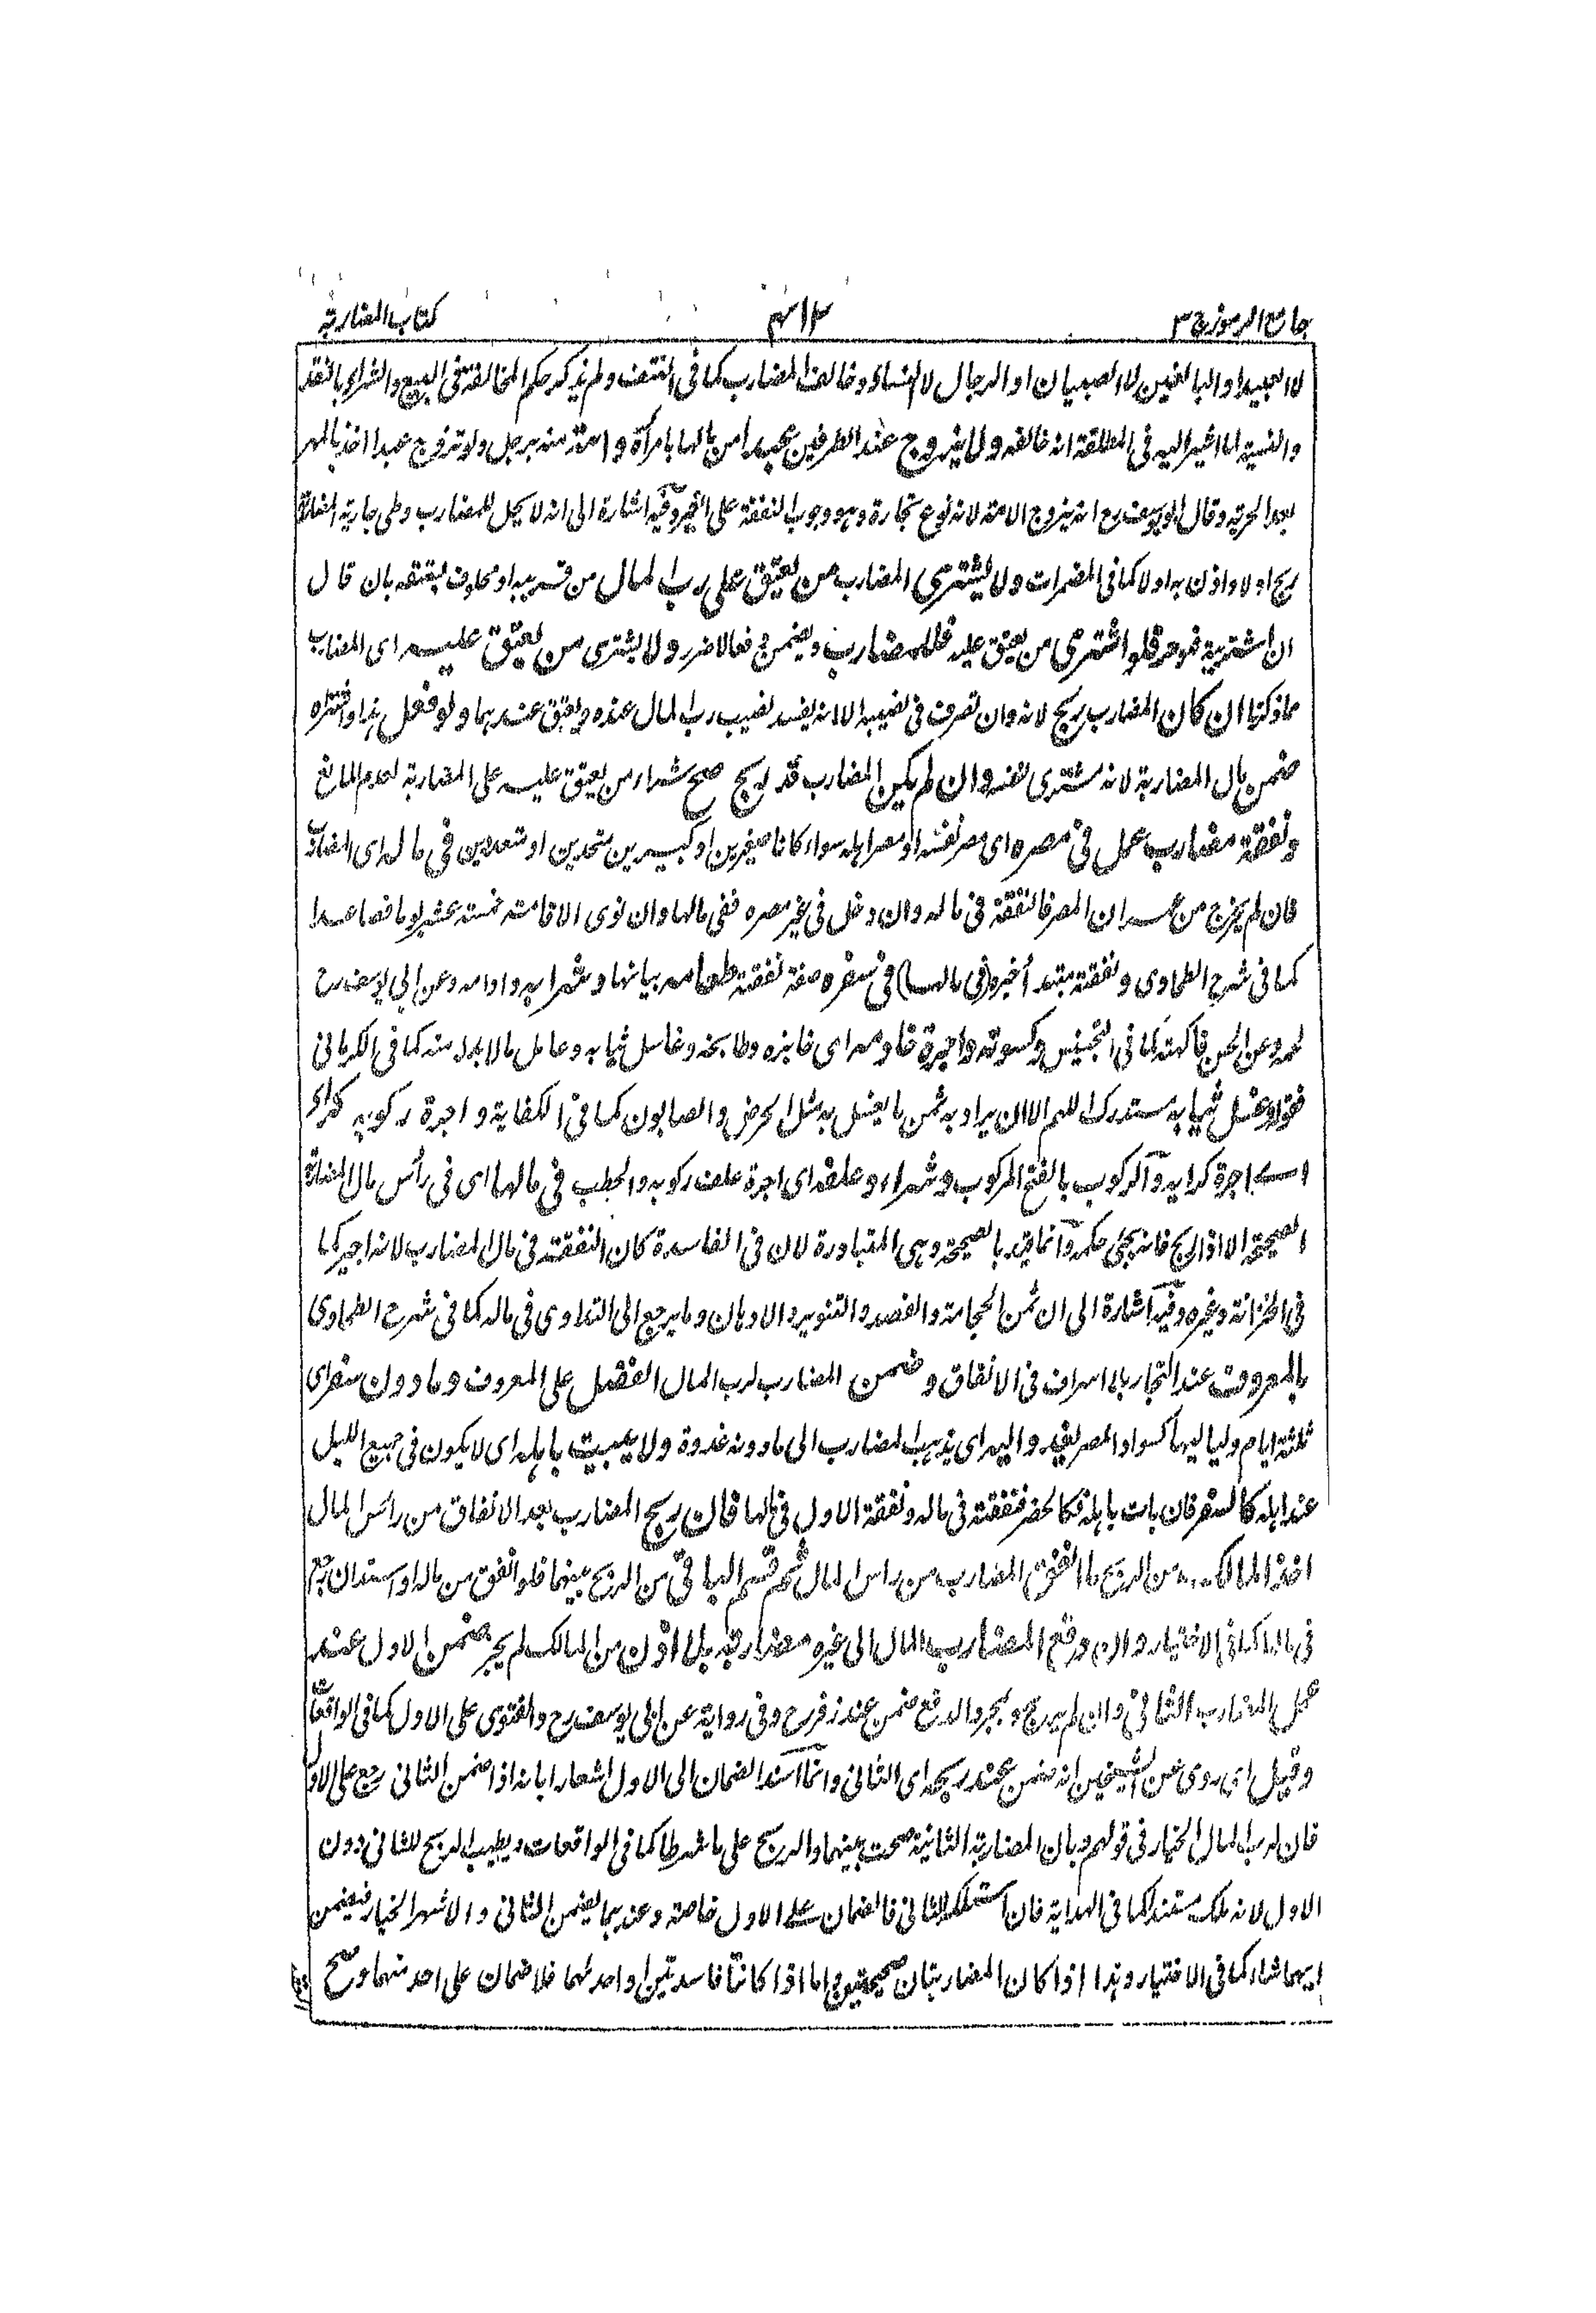 جامع الرموز ج ٣
كتاب المضاربة
لا العبيد او البالغين لا الصبيان او الرجال لا النساء وخالف المضارب كما فى النتف ولم يذكر حكم المخالفة فى البيع والشراء بالنقد
والنسية لما اشير اليه فى المطلقة انه خالفه ولا يزوج عند الطرفين عبدا من مالها بامرأة و امته منه برجل ولو تزوج عبدا اخذ بالمهر
بعد الحرية وقال ابو يوسف رح انه يزوج الامة لانه نوع تجارة وهو وجوب النفقة على الغير وفيه اشارة الى انه لا يحل للمضارب وطى جارية المضاربة
ربح اولا واذن به اولا كما فى المضمرات ولا يشترى المضارب من يعتق على رب المال من قريبه او محلوف بعتقه بان قال
ان اشتريته فهو حر فلو اشترى من يعتق عليه فللمضارب ويضمن دفعا لاضرر ولا يشترى من يعتق عليه اى المضارب
مما ذكرنا ان كان المضارب ربح لانه وان تصرف فى نصيبه الا انه يفسد نصيب رب المال عنده ويعتق عندهما ولو فعل هذا واشتراه
ضمن مال المضاربة لانه مشترى لنفسه و ان لم يكن المضارب قد ربح صح شراء من يعتق عليه على المضاربة لعدم المانع
ونفقة مضارب عمل فى مصره اى مصر نفسه او مصر اهله سواء كانا صغيرين او كبيرين متحدين او متعددين فى ماله اى المضارب
فان لم يخرج من عمران المصر فالنفقة فى ماله وان دخل فى غير مصره ففى مالها وان نوى الاقامة خمسة عشر يوما فصاعدا
كما فى شرح الطحاوى ونفقته مبتدأ خبره (فى مالها) فى سفره صفة نفقته طعامه بيانها وشرابه وادامه وعن ابى يوسف رح
لحمه وعن الحسن فاكهته كما فى التجنيس وكسوته واجرة خادمه اى خابزه وطابخه وغاسل ثيابه وعامل مالا بد له منه كما فى الكرمانى
فقوله وغسل ثيابه مستدرك اللهم الا ان يراد به ثمن ما يغسل به مثل الحرض والصابون كما فى الكفاية و اجرة ركوبه كراء
اى اجرة كرايه والركوب بالفتح المركوب وشراء وعلفه اى اجرة علف ركوبه والحطب فى مالها اى فى رأس مال المضاربة
الصحيحة الا اذا ربح فانه يجئ حكمه وانما قيد بالصحيحة وهى المتبادرة لان فى الفاسدة كان النفقة فى مال المضارب لانه اجير كما
فى الخزانة وغيره وفيه اشارة الى ان ثمن الحجامة والفصد والتنوير والادهان وما يرجع الى التداوى فى ماله كما فى شرح الطحاوى
بالمعروف عند التجار بلا اسراف فى الانفاق وضمن المضارب لرب المال الفضل على المعروف وما دون سفر اى
ثلثة ايام ولياليها كسواد المصر يغدو اليه اى يذهب المضارب الى ما دونه غدوة ولا يبيت باهله اى لا يكون فى جميع الليل
عند اهله كالسفر فان بات باهله فكالحضر فنفقته فى ماله ونفقة الاول فى مالها فان ربح المضارب بعد الانفاق من رأس المال
اخذ المالك من الربح ما انفق المضارب من رأس المال ثم قسم الباقى من الربح بينهما فلو انفق من ماله او استدان رجع
فى مالها كما فى الاختيار وان دفع المضارب المال الى غيره مضاربة بلا اذن من المالك لم يجز ضمن الاول عند
عمل المضارب الثانى وان لم يربح وبمجرد الدفع ضمن عند زفر رح وفى رواية عن ابى يوسف رح والفتوى على الاول كما فى الواقعات
وقيل اى روى عن الشيخين انه ضمن عند ربحه اى الثانى وانما اسند الضمان الى الاول اشعارا بانه اذا ضمن الثانى رجع على الاول
فان لرب المال الخيار فى قولهم وبان المضاربة الثانية صحت بينهما والربح على ما شرطا كما فى الواقعات ويطيب الربح للثانى دون
الاول لانه ملك مستندا كما فى الهداية فان استهلك الثانى فالضمان على الاول خاصة وعندهما يضمن الثانى والاشهر الخيار فيضمن
ايهما شاء كما فى الاختيار وهذا اذا كان المضاربتان صحيحتين واما اذا كانتا فاسدتين او احدٰهما فلا ضمان على احد منهما وصح